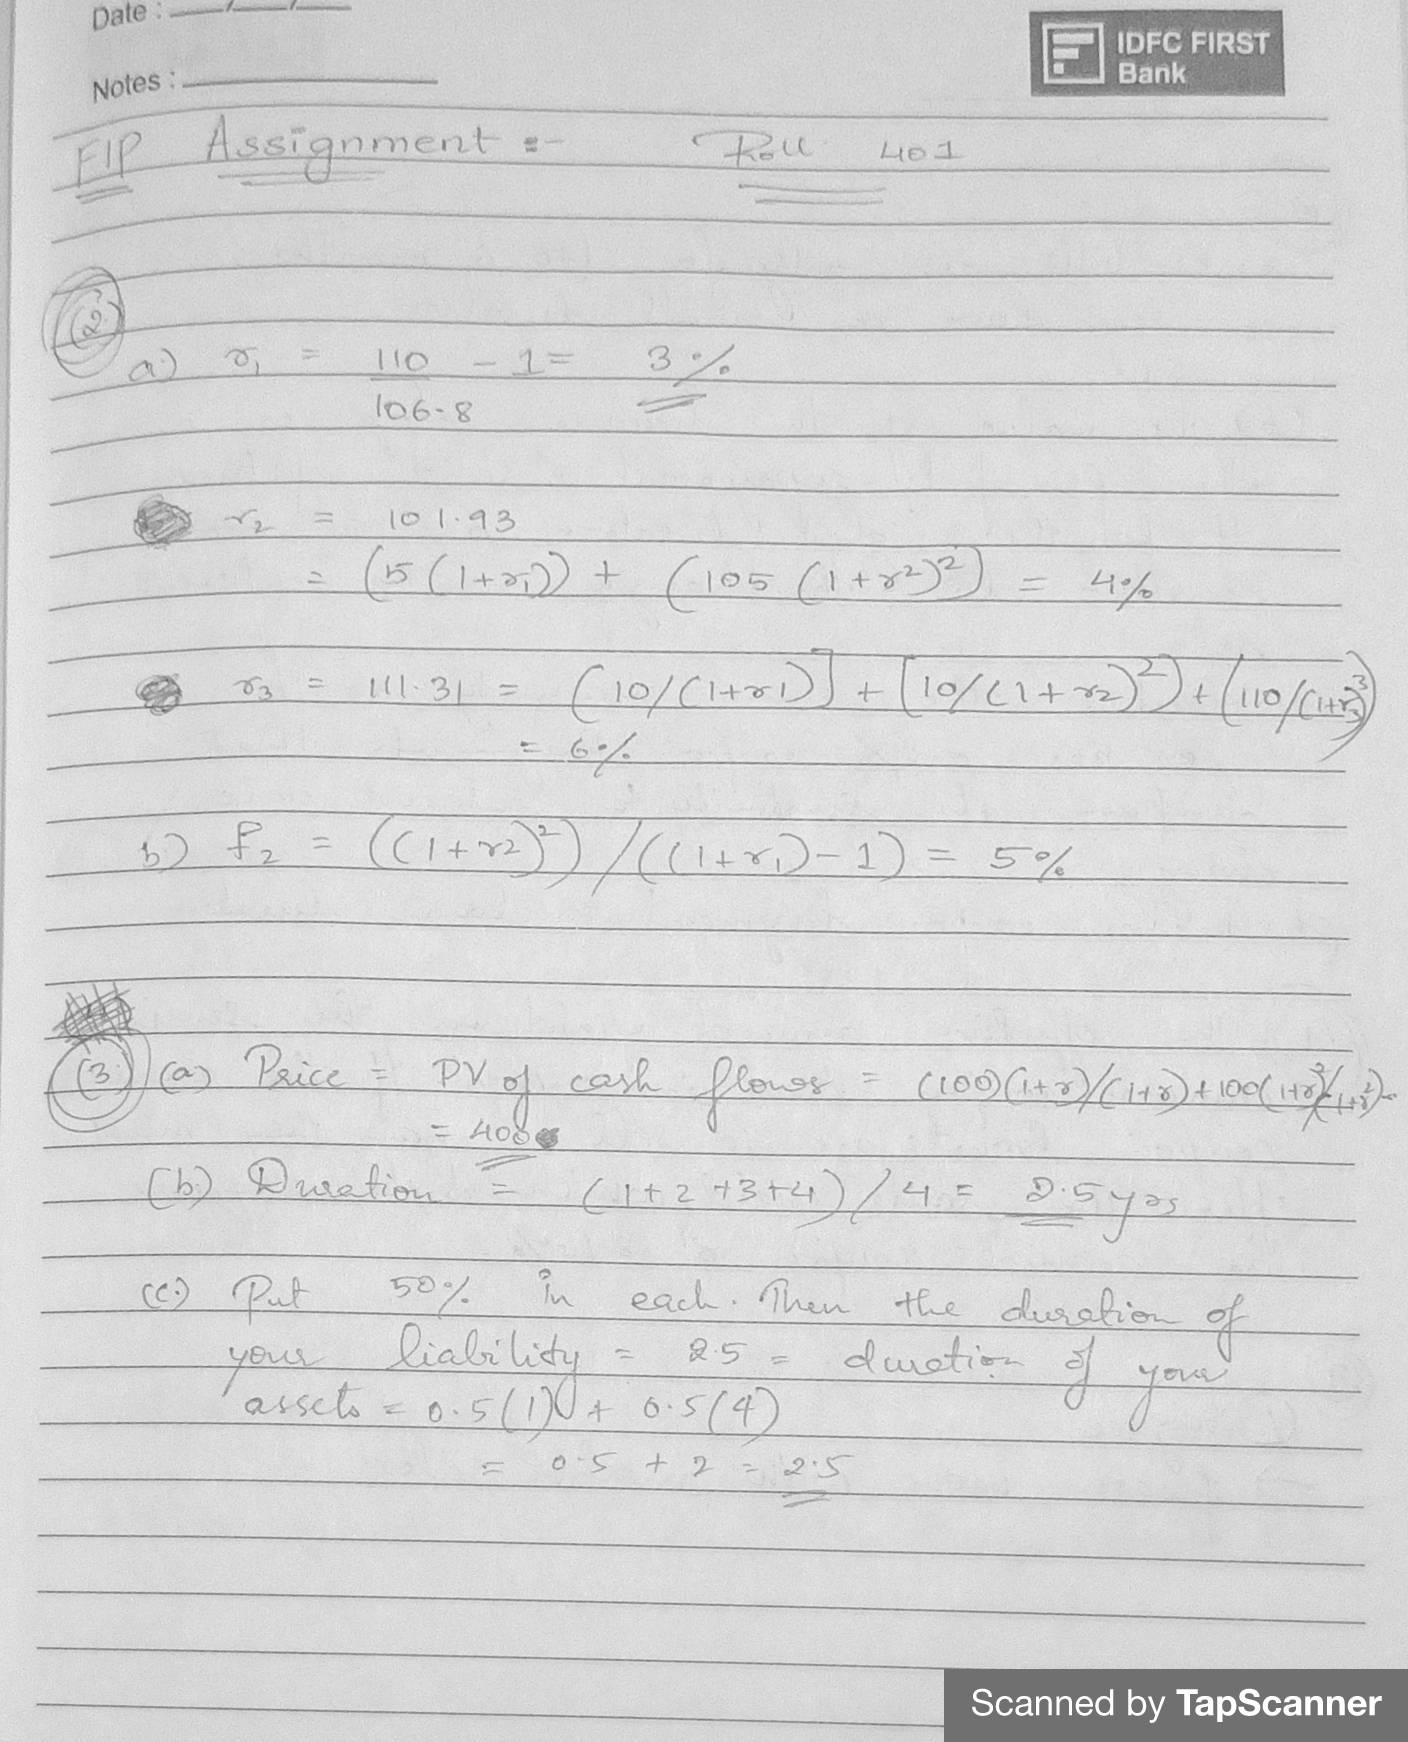 Date : __/__/__
IDFC FIRST
Bank
Notes :
FIP Assignment :- Roll 401
(2)
a) r₁ = 110 - 1 = 3%
106.8
r₂ = 101.93
= (5(1+r₁)) + (105(1+r2)²) = 4%
r₃ = 111.31 = (10/(1+r1)] + [10/(1+r2)²) + (110/(1+r₃)³)
= 6%
b) f₂ = ((1+r2)²)/((1+r₁)-1) = 5%
(3) (a) Price = PV of cash flows = (100)(1+r)/(1+r)+100(1+r)²/(1+r²)-
= 400
(b) Duration = (1+2+3+4)/4 = 2.5yrs
(c) Put 50% in each. Then the duration of
your liability = 2.5 = duration of your
assets = 0.5(1) + 0.5(4)
= 0.5 + 2 = 2.5
Scanned by TapScanner